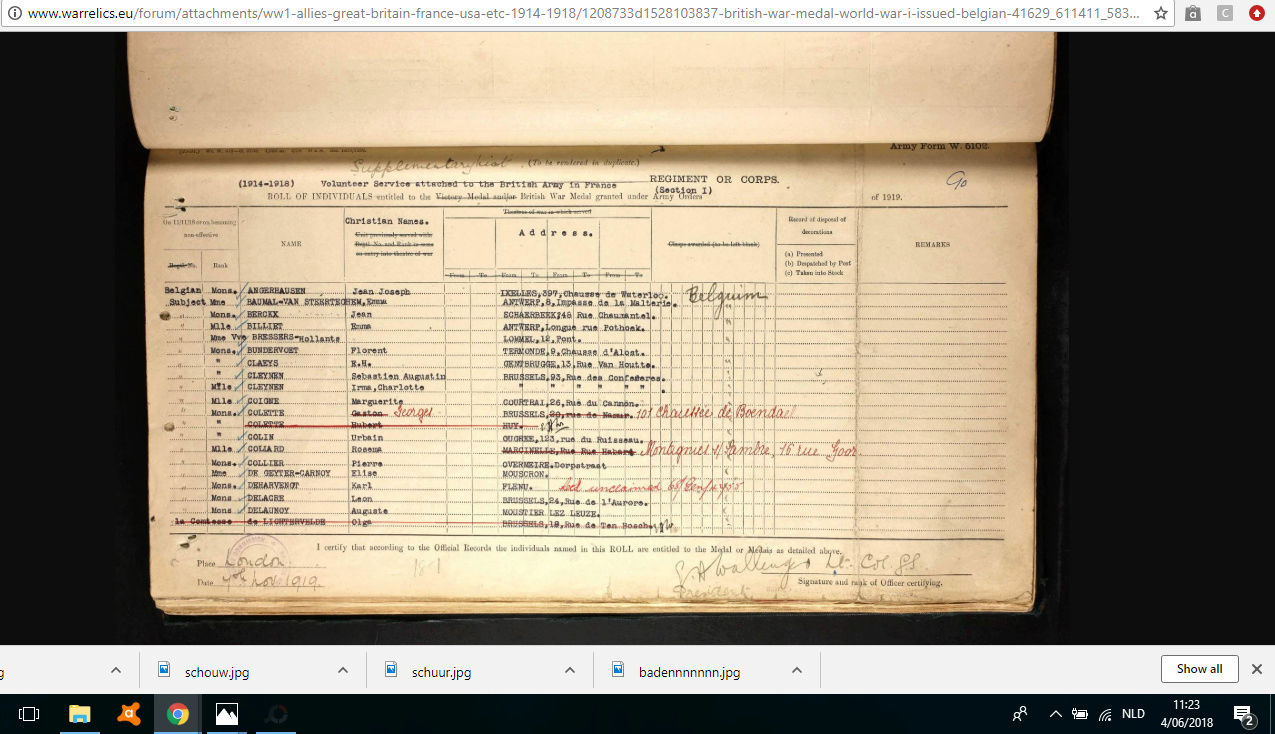 www.warrelics.eu/forum/attachments/ww1-allies-great-britain-france-usa-etc-1914-1918/1208733d1528103837-british-war-medal-world-war-i-issued-belgian-41629_611411_583...
Army Form W. 5102.
Supplementary List. (To be rendered in duplicate.)
(1914-1918) Volunteer Service attached to the British Army in France REGIMENT OR CORPS. 90
ROLL OF INDIVIDUALS entitled to the Victory Medal and/or British War Medal granted under Army Orders (Section I) of 1919.
On 11/11/18 or on becoming non-effective
Regtl. No. Rank
NAME
Christian Names.
Unit previously served with Regtl. No. and Rank in same on entry into theatre of war
Theatres of war in which served
Address.
From To From To From To From To
Clasps awarded (to be left blank)
Record of disposal of decorations
(a) Presented
(b) Despatched by Post
(c) Taken into Stock
REMARKS
Belgian Mons. ANGERHAUSEN Jean Joseph IXELLES,397,Chausse de Waterloo. Belguim
Subject Mme BAUMAL-VAN STEERTEGHEM,Emma ANTWERP,8,Impasse de la Malterie.
" Mons. BERCKX Jean SCHAERBEEK,48 Rue Chaumantel.
" Mlle BILLIET Emma ANTWERP,Longue rue Pothoek.
" Mme Vve BRESSERS-Hollants LOMMEL,12,Pont.
" Mons. BUNDERVOET Florent TERMONDE,9,Chausse d'Alost.
" " CLAEYS E.H. GENTBRUGGE,13,Rue Van Houtte.
" " CLEYNEN Sebastien Augustin BRUSSELS,93,Rue des Confederes.
" Mlle CLEYNEN Irma,Charlotte " " " " " "
" Mlle COIGNE Marguerite COURTRAI,26,Rue du Cannon.
" Mons. COLETTE Gaston Georges BRUSSELS,20,rue de Namur. 101 Chaussée de Boendael
" " COLETTE Hubert HUY.
" " COLIN Urbain OUGREE,123,rue du Ruisseau.
" Mlle COLLARD Rosema MARCINELLE, Rue Hubert Montignies s/ Sambre, 16 rue Goor
" Mons. COLLIER Pierre OVERMEIRE.Dorpstraat
" Mme DE GEYTER-CARNOY Elise MOUSCRON.
" Mons. DEHARVENGT Karl FLENU. unclaimed
" Mons DELACRE Leon BRUSSELS,24,Rue de l'Aurore.
" Mons DELAUNOY Auguste MOUSTIER LEZ LEUZE.
la Comtesse de LICHTERVELDE Olga BRUSSELS,19,Rue de Ten Bosch.
I certify that according to the Official Records the individuals named in this ROLL are entitled to the Medal or Medals as detailed above.
Place London
Date 7th Nov. 1919.
Lt. Col. GS.
Signature and rank of Officer certifying.
President
schouw.jpg
schuur.jpg
badennnnnnn.jpg
Show all
NLD
11:23
4/06/2018
2